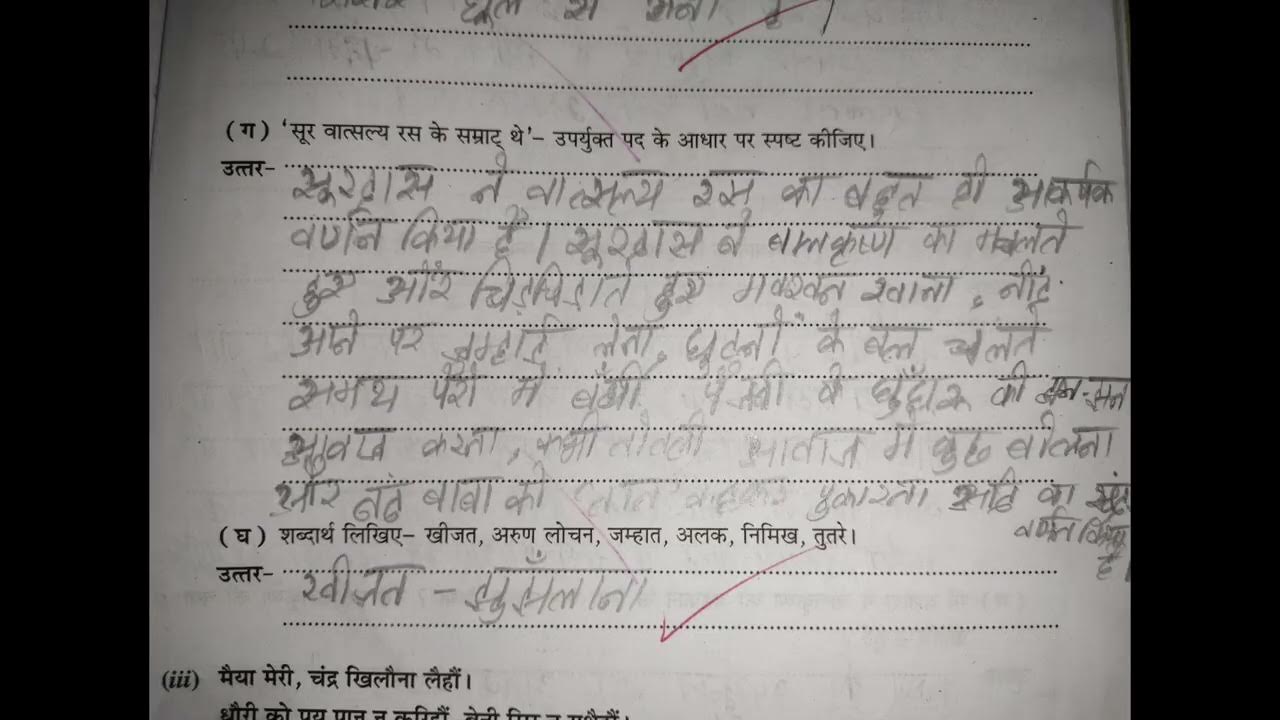 धूल से सना है।
(ग) 'सूर वात्सल्य रस के सम्राट् थे'– उपर्युक्त पद के आधार पर स्पष्ट कीजिए।
उत्तर-
सूरदास ने वात्सल्य रस का बहुत ही आकर्षक
वर्णन किया है। सूरदास ने बालकृष्ण का मचलते
हुए और चिड़चिड़ाते हुए मक्खन खाना, नींद
आने पर जम्हाई लेना, घुटनों के बल चलते
समय पैरों में बँधी के घुँघरू की झन-झन
करना, कभी तोतली आवाज में कुछ बोलना
और नंद बाबा को तात कहकर पुकारना आदि का
वर्णन किया
है।
(घ) शब्दार्थ लिखिए– खीजत, अरुण लोचन, जम्हात, अलक, निमिख, तुतरे।
उत्तर-
खीजत – झुँझलाना
(iii) मैया मेरी, चंद्र खिलौना लैहौं।
धौरी को पय पान न करिहौं, बेनी सिर न गुथैहौं।